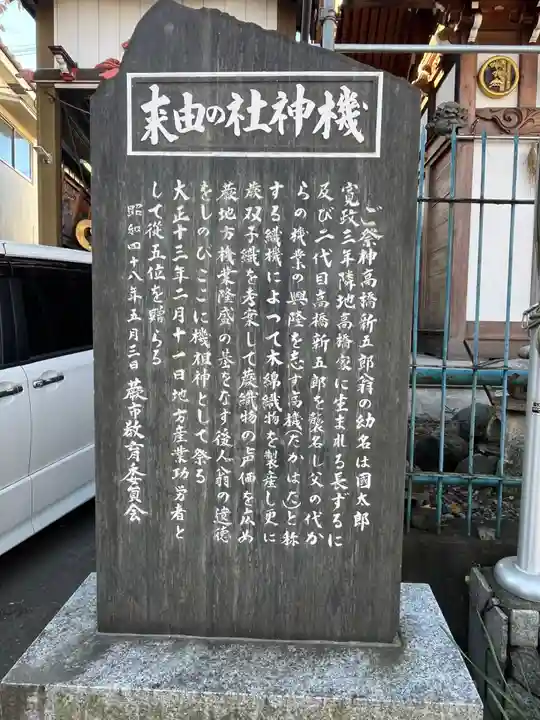 機神社の由来
ご祭神高橋新五郎翁の幼名は國太郎
寛政三年隣地高橋家に生まれる長ずるに
及び二代目高橋新五郎を襲名し父の代か
らの機業の興隆を志す高機(たかはた)と称
する織機によって木綿織物を製産し更に
蕨双子織を考案して蕨織物の声価を広め
蕨地方機業隆盛の基をなす後人翁の遺徳
をしのびここに機祖神として祭る
大正十三年二月十一日地方産業功労者と
して従五位を贈らる
昭和四十八年五月三日蕨市教育委員会